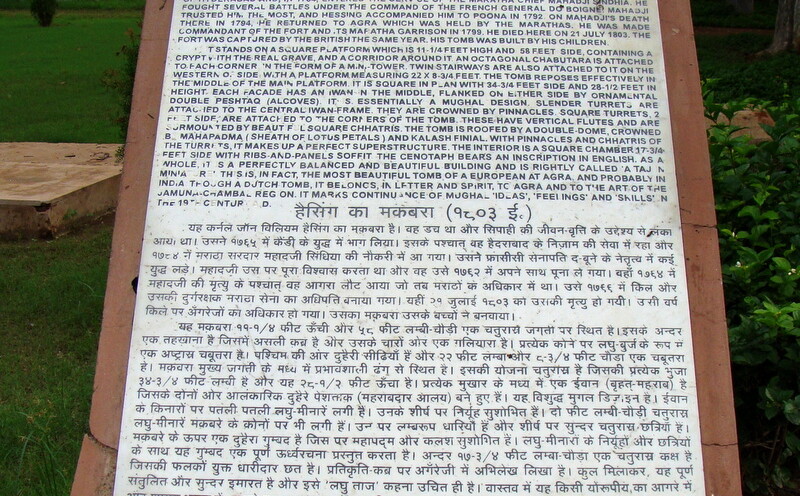 FOUGHT SEVERAL BATTLES UNDER THE COMMAND OF THE FRENCH GENERAL DE BOIGNE. MAHADJI
TRUSTED HIM THE MOST, AND HESSING ACCOMPANIED HIM TO POONA IN 1792. ON MAHADJI'S DEATH
THERE IN 1794, HE RETURNED TO AGRA WHICH WAS HELD BY THE MARATHAS. HE WAS MADE
COMMANDANT OF THE FORT AND ITS MARATHA GARRISON IN 1799. HE DIED HERE ON 21 JULY 1803. THE
FORT WAS CAPTURED BY THE BRITISH THE SAME YEAR. HIS TOMB WAS BUILT BY HIS CHILDREN.
IT STANDS ON A SQUARE PLATFORM WHICH IS 11-1/4 FEET HIGH AND 58 FEET SIDE, CONTAINING A
CRYPT WITH THE REAL GRAVE, AND A CORRIDOR AROUND IT. AN OCTAGONAL CHABUTARA IS ATTACHED
TO EACH CORNER IN THE FORM OF A MINI-TOWER. TWIN STAIRWAYS ARE ALSO ATTACHED TO IT ON THE
WESTERN SIDE WITH A PLATFORM MEASURING 22 X 8-3/4 FEET. THE TOMB REPOSES EFFECTIVELY IN
THE MIDDLE OF THE MAIN PLATFORM. IT IS SQUARE IN PLAN WITH 34-3/4 FEET SIDE AND 28-1/2 FEET IN
HEIGHT. EACH FACADE HAS AN IWAN IN THE MIDDLE, FLANKED ON EITHER SIDE BY ORNAMENTAL
DOUBLE PESHTAQ (ALCOVES). IT IS ESSENTIALLY A MUGHAL DESIGN. SLENDER TURRETS ARE
ATTACHED TO THE CENTRAL IWAN-FRAME. THEY ARE CROWNED BY PINNACLES. SQUARE TURRETS, 2
FEET SIDE, ARE ATTACHED TO THE CORNERS OF THE TOMB. THESE HAVE VERTICAL FLUTES AND ARE
SURMOUNTED BY BEAUTIFUL SQUARE CHHATRIS. THE TOMB IS ROOFED BY A DOUBLE-DOME, CROWNED
BY MAHAPADMA (SHEATH OF LOTUS PETALS) AND KALASH FINIAL. WITH PINNACLES AND CHHATRIS OF
THE TURRETS, IT MAKES UP A PERFECT SUPERSTRUCTURE. THE INTERIOR IS A SQUARE CHAMBER 17-3/4
FEET SIDE WITH RIBS-AND-PANELS SOFFIT. THE CENOTAPH BEARS AN INSCRIPTION IN ENGLISH. AS A
WHOLE, IT IS A PERFECTLY BALANCED AND BEAUTIFUL BUILDING AND IS RIGHTLY CALLED 'A TAJ IN
MINIATURE' THIS IS, IN FACT, THE MOST BEAUTIFUL TOMB OF A EUROPEAN AT AGRA, AND PROBABLY IN
INDIA THOUGH A DUTCH TOMB, IT BELONGS, IN LETTER AND SPIRIT, TO AGRA AND TO THE ART OF THE
JAMUNA-CHAMBAL REGION. IT MARKS CONTINUANCE OF MUGHAL 'IDEAS', 'FEELINGS' AND 'SKILLS' IN
THE 19TH CENTURY A.D.
हैसिंग का मकबरा (१८०३ ई.)
यह कर्नल जॉन विलियम हैसिंग का मकबरा है। वह डच था और सिपाही की जीवन-वृत्ति के उद्देश्य से लंका
आया था। उसने १७६५ में कैंडी के युद्ध में भाग लिया। इसके पश्चात् वह हैदराबाद के निज़ाम की सेवा में रहा और
१७८४ में मराठा सरदार महादजी सिंधिया की नौकरी में आ गया। उसने फ्रांसीसी सेनापति द-बूने के नेतृत्व में कई
युद्ध लड़े। महादजी उस पर पूरा विश्वास करता था और वह उसे १७६२ में अपने साथ पूना ले गया। वहाँ १७६४ में
महादजी की मृत्यु के पश्चात् वह आगरा लौट आया जो तब मराठों के अधिकार में था। उसे १७६६ में किले और
उसकी दुर्गरक्षक मराठा सेना का अधिपति बनाया गया। यहीं २१ जुलाई १८०३ को उसकी मृत्यु हो गयी। उसी वर्ष
किले पर अँगरेजों का अधिकार हो गया। उसका मकबरा उसके बच्चों ने बनवाया।
यह मकबरा ११-१/४ फीट ऊँची और ५८ फीट लम्बी-चौड़ी एक चतुरास्र जगती पर स्थित है। इसके अन्दर
एक तहखाना है जिसमें असली कब्र है और उसके चारों ओर एक गलियारा है। प्रत्येक कोने पर लघु-बुर्ज के रूप में
एक अष्टास्र चबूतरा है। पश्चिम की ओर दुहेरी सीढ़ियाँ हैं और २२ फीट लम्बा और ८-३/४ फीट चौड़ा एक चबूतरा
है। मकबरा मुख्य जगती के मध्य में प्रभावशाली ढंग से स्थित है। इसकी योजना चतुरास्र है जिसकी प्रत्येक भुजा
३४-३/४ फीट लम्बी है और यह २८-१/२ फीट ऊँचा है। प्रत्येक मुखार के मध्य में एक ईवान (बृहत्-महराब) है
जिसके दोनों ओर आलंकारिक दुहरे पेशताक़ (महराबदार आलय) बने हुए हैं। यह विशुद्ध मुगल डिज़ाइन है। ईवान
के किनारों पर पतली पतली लघु-मीनारें लगी हैं। उनके शीर्ष पर निर्यूह सुशोभित हैं। दो फीट लम्बी चौड़ी चतुरास्र
लघु-मीनारें मकबरे के कोनों पर भी लगी हैं। उन पर लम्बरूप धारियाँ हैं और शीर्ष पर सुन्दर चतुरास्र छत्रियाँ हैं।
मकबरे के ऊपर एक दुहरा गुम्बद है जिस पर महापद्म और कलश सुशोभित हैं। लघु-मीनारों के निर्यूहों और छत्रियों
के साथ यह गुम्बद एक पूर्ण ऊर्ध्वरचना प्रस्तुत करता है। अन्दर १७-३/४ फीट लम्बा-चौड़ा एक चतुरास्र कक्ष है
जिसकी फलकों युक्त धारीदार छत है। प्रतिकृति-कब्र पर अँगरेजी में अभिलेख लिखा है। कुल मिलाकर, यह पूर्ण
संतुलित और सुन्दर इमारत है और इसे 'लघु ताज' कहना उचित ही है। वास्तव में यह किसी योरूपीय का आगरे में